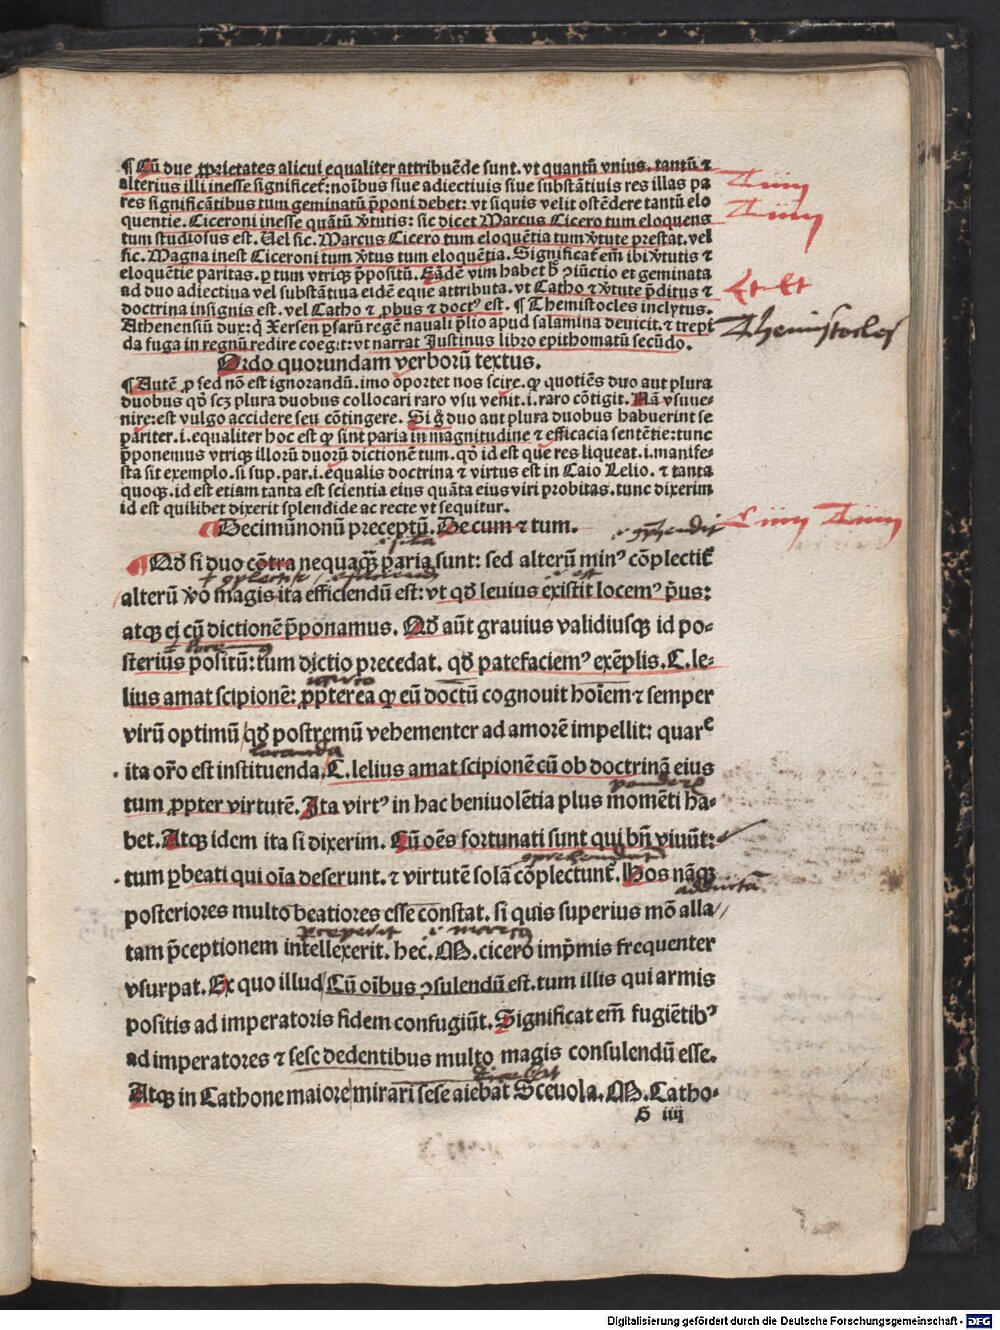 ¶ Cū due ꝓprietates alicui equaliter attribuēde sunt. vt quantū vnius. tantū ⁊
alterius illi inesse significet᷑: noībus siue adiectiuis siue substātiuis res illas pa
res significātibus tum geminatū p̄poni debet: vt siquis velit ostēdere tantū elo
quentie. Ciceroni inesse quātū v̄tutis: sic dicet Marcus Cicero tum eloquens
tum studiosus est. Uel sic. Marcus Cicero tum eloquētia tum v̄tute prestat. vel
sic. Magna inest Ciceroni tum v̄tus tum eloquētia. Significat em̄ ibi v̄tutis ⁊
eloquētie paritas. ꝑ tum vtriqꝫ p̄positū. Eādē vim habet hꝫ ꝯiūctio et geminata
ad duo adiectiua vel substātiua eidē eque attributa. vt Catho ⁊ v̄tute p̄ditus ⁊
doctrina insignis est. vel Catho ⁊ ꝓbus ⁊ doctꝰ est. ¶ Themistocles inclytus.
Athenensiū dux: q̇ Xersen ꝑsarū regē nauali p̄lio apud salamina deuicit. ⁊ trepi
da fuga in regnū redire coegit: vt narrat Justinus libro epithomatū secūdo.
Ordo quorundam verborū textus.
¶ Autē ꝓ sed nō est ignorandū. imo oportet nos scire. ꝙ quotiēs duo aut plura
duobus qđ scꝫ plura duobus collocari raro vsu venit. i. raro cōtigit. Nā vsuue-
nire: est vulgo accidere seu cōtingere. Si g̊ duo aut plura duobus habuerint se
pariter. i. equaliter hoc est ꝙ sint paria in magnitudine ⁊ efficacia sentētie: tunc
p̄ponemus vtriqꝫ illorū duorū dictionē tum. qđ id est que res liqueat. i. manife-
sta sit exemplo. si sup. par. i. equalis doctrina ⁊ virtus est in Caio Lelio. ⁊ tanta
quoqꝫ. id est etiam tanta est scientia eius quāta eius viri probitas. tunc dixerim
id est quilibet dixerit splendide ac recte vt sequitur.
¶ Decimūnonū preceptū. De cum ⁊ tum.
¶ Qđ si duo cōtra nequaqꝫ paria sunt: sed alterū minꝰ cōplectit᷑
alterū v̄o magis ita efficiendū est: vt qđ leuius existit locemꝰ p̄us:
atqꝫ ei cū dictionē p̄ponamus. Qđ aūt grauius validiusqꝫ id po-
sterius positū: tum dictio precedat. qđ patefaciemꝰ exēplis. C. le-
lius amat scipionē: ꝓpterea ꝙ eū doctū cognouit hoīem ⁊ semper
virū optimū qđ postremū vehementer ad amorē impellit: quare
ita or̄o est instituenda. C. lelius amat scipionē cū ob doctrinā eius
tum ꝓpter virtutē. Ita virtꝰ in hac beniuolētia plus momēti ha-
bet. Atqꝫ idem ita si dixerim. Cū oēs fortunati sunt qui bn̄ viuūt:
tum ꝑbeati qui oīa deserunt. ⁊ virtutē solā cōplectunt᷑. Hos nāqꝫ
posteriores multo beatiores esse constat. si quis superius mō alla
tam p̄ceptionem intellexerit. hec. M. cicero imp̄mis frequenter
vsurpat. Ex quo illud Cū oībus ꝯsulendū est. tum illis qui armis
positis ad imperatoris fidem confugiūt. Significat em̄ fugiētibꝰ
ad imperatores ⁊ sese dedentibus multo magis consulendū esse.
Atqꝫ in Cathone maiore mirari sese aiebat Sceuola. M. Catho-
S iiij
Tum
Tum
Et Et
Themistocles
Cum Tum
Digitalisierung gefördert durch die Deutsche Forschungsgemeinschaft - DFG